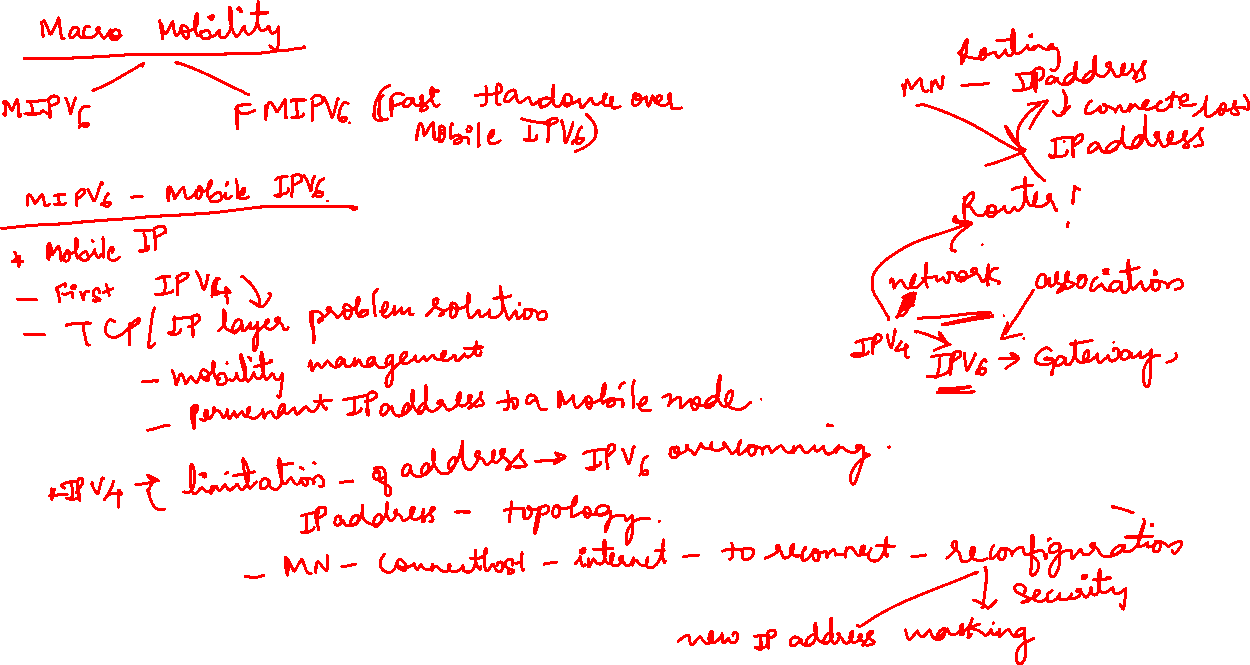 Macro Mobility
MIPV6 FMIPV6 (Fast Handance over
Mobile IPV6)
MIPV6 - Mobile IPV6
* Mobile IP
- First IPV4
- TCP/IP layer problem solution
- mobility management
- permenant IPaddress to a Mobile node.
IPV4 → limitation - of address → IPV6 overcomming.
IPaddress - topology.
- MN - Connectlost - internet - to reconnect - reconfiguration
security
new IP address masking
Routing
MN - IPaddress
↓ connecte lost
IPaddress
Router
network association
IPV4
IPV6 → Gateway,